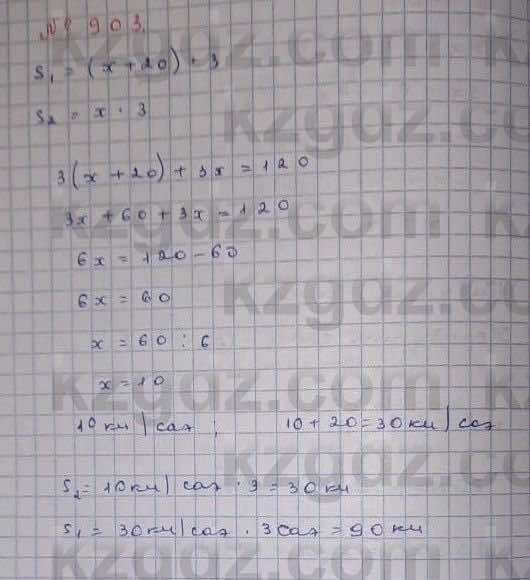 № 903.
S₁ = (x + 20) · 3
S₂ = x · 3
3(x + 20) + 3x = 120
3x + 60 + 3x = 120
6x = 120 - 60
6x = 60
x = 60 : 6
x = 10
10 км | сағ ; 10 + 20 = 30 км | сағ
S₂ = 10 км | сағ · 3 = 30 км
S₁ = 30 км | сағ · 3 сағ = 90 км
kzgdz.com